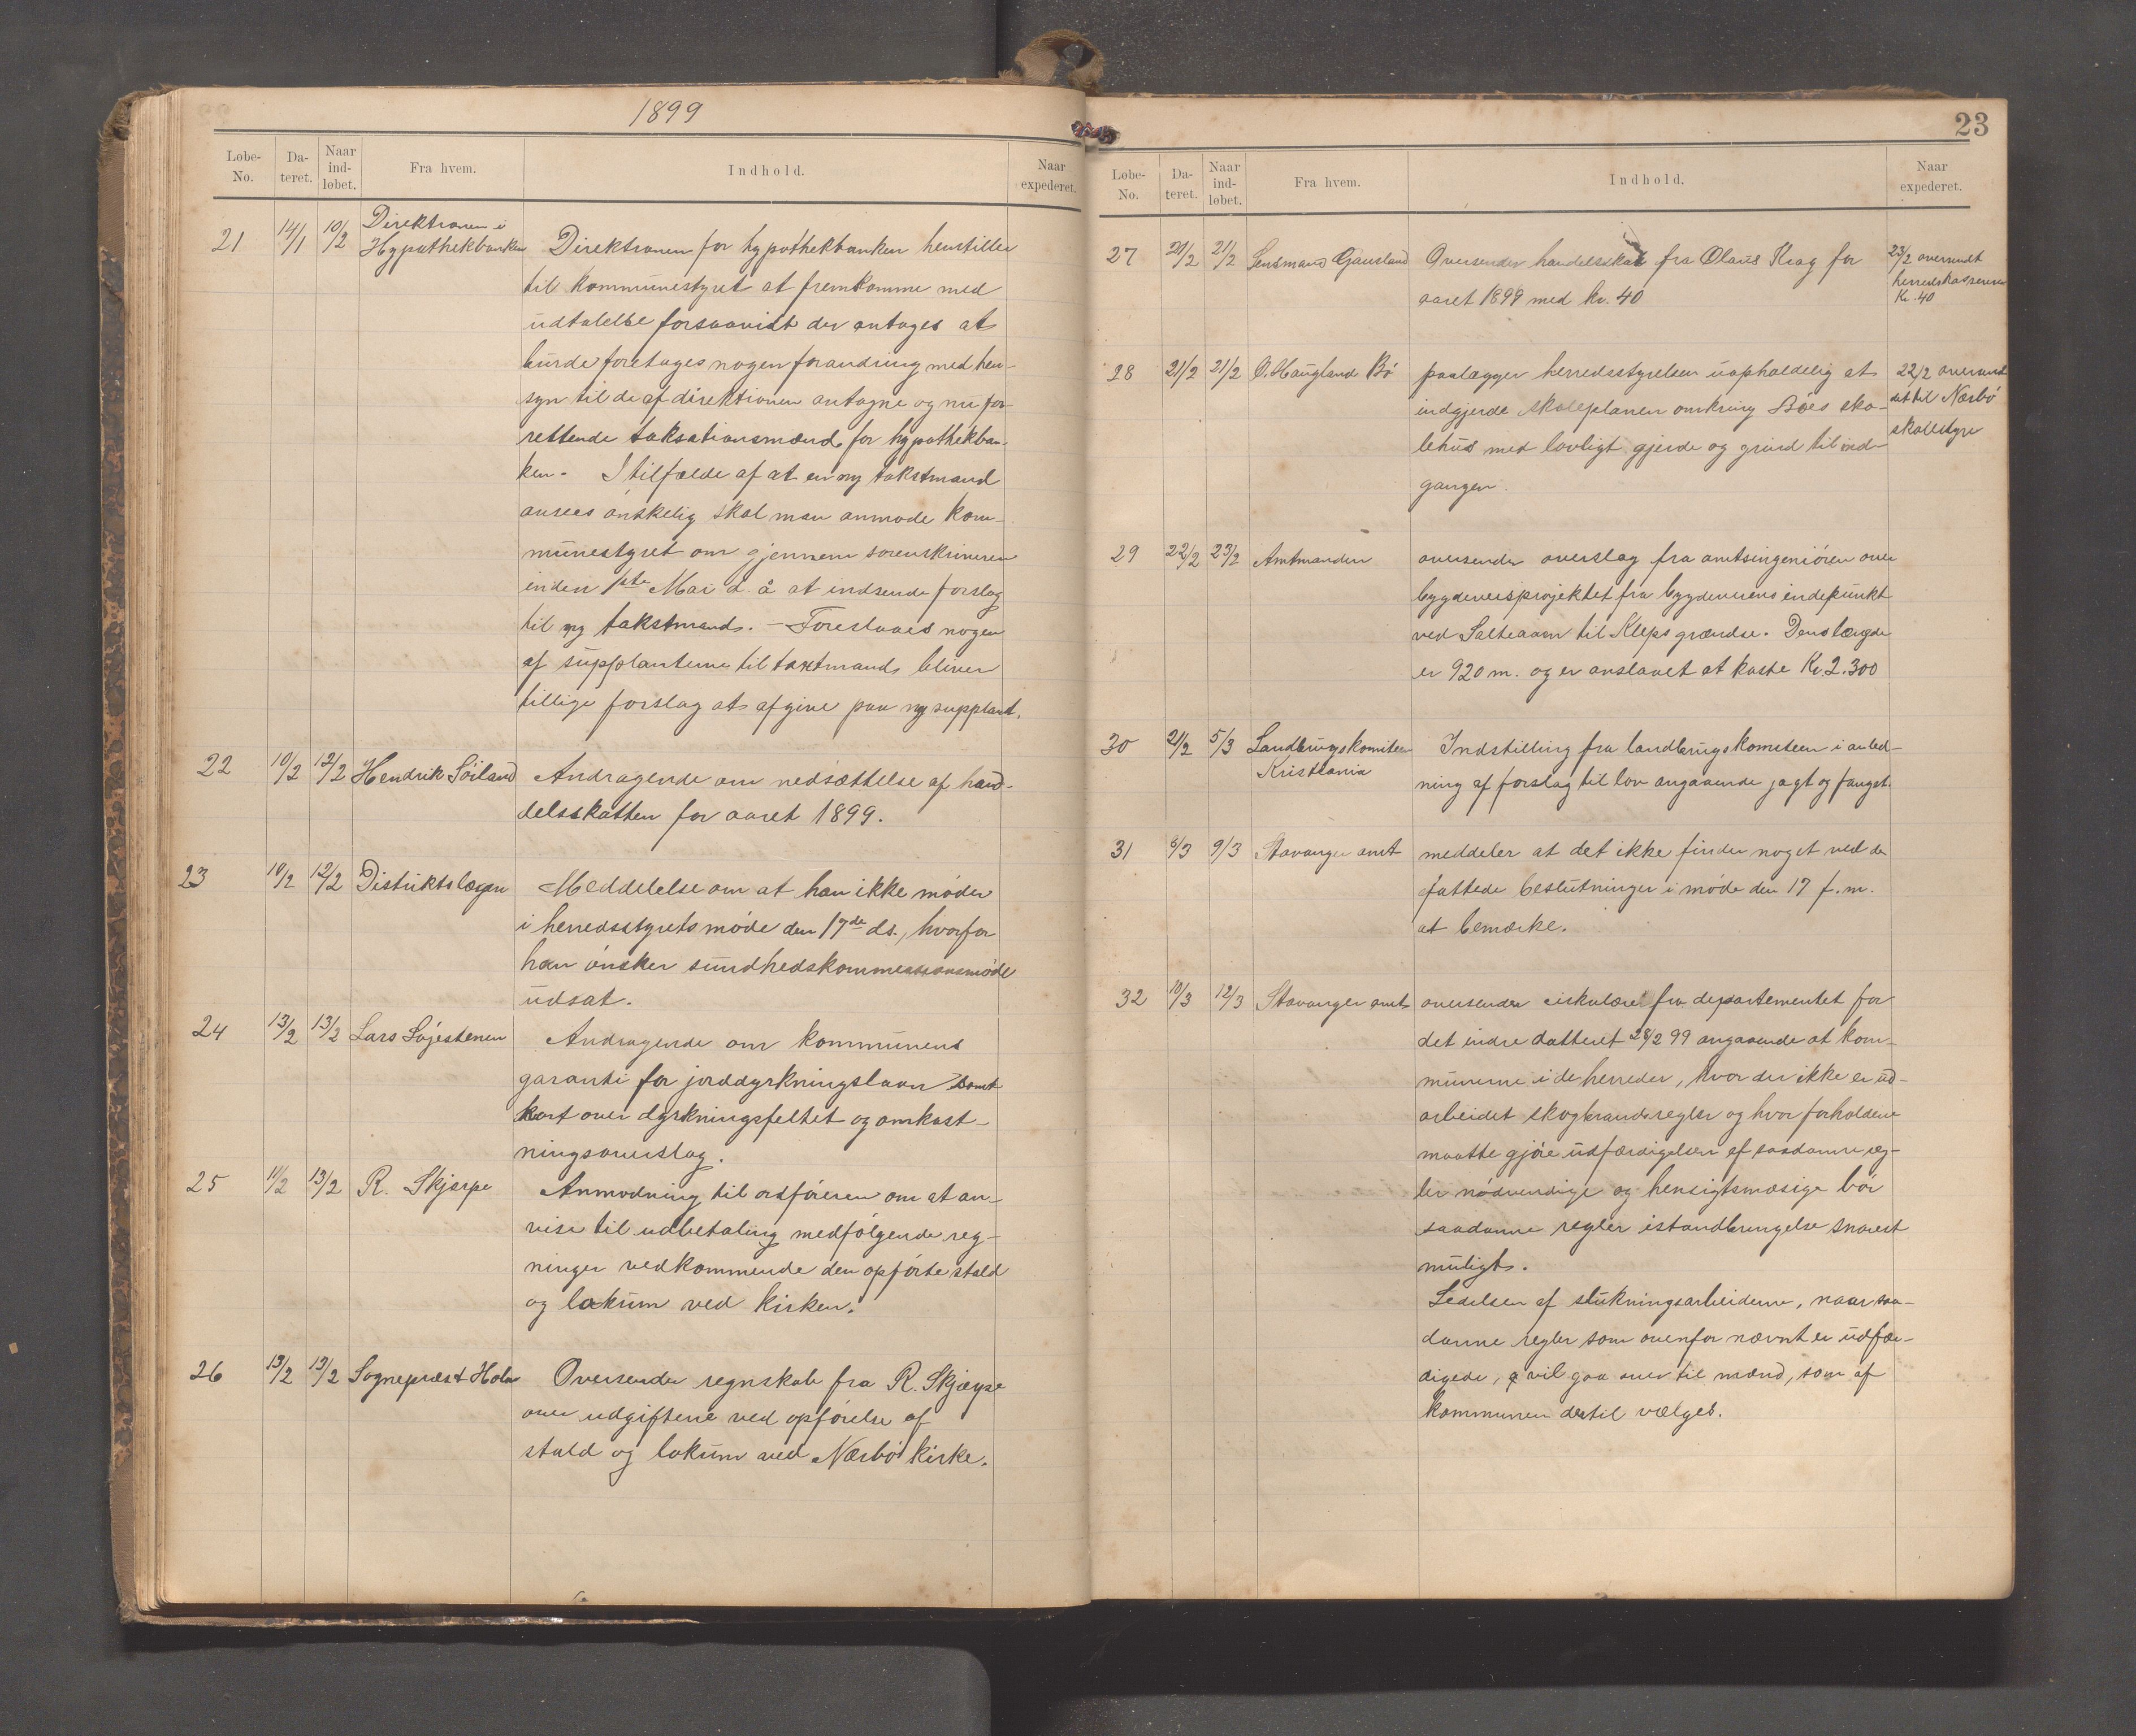 1899
Løbe-No. Da-teret. Naar ind-løbet. Fra hvem. Indhold. Naar expederet.
21 14/1 10/2 Direktionen i
Hypothekbanken Direktionen for hypothekbanken henstiller
til kommunestyret at fremkomme med
udtalelse forsaavidt der antages at
burde foretages nogen forandring med hen-
syn til de af direktionen antagne og nu for-
rettende taksationsmænd for hypothekban-
ken. I tilfælde af at en ny takstmand
ansees ønskelig skal man anmode kom-
munestyret om gjennem sorenskriveren
inden 1ste Mai d. å at indsende forslag
til ny takstmand. - Foreslaaes nogen
af supplanterne til taxtmand, bliver
tillige forslag at afgive paa ny supplant.
22 10/2 12/2 Hendrik Söiland Andragende om nedsættelse af han-
delsskatten for aaret 1899.
23 10/2 12/2 Distriktslægen Meddelelse om at han ikke møder
i herredsstyrets møde den 17de ds., hvorfor
han ønsker sundhedskommessionsmøde
udsat.
24 13/2 13/2 Lars Löjestenen Andragende om kommunens
garanti for jorddyrkningslaan samt
kart over dyrkningsfeltet og omkost-
ningsoverslag.
25 11/2 13/2 R. Skjærpe Anmodning til ordføreren om at an-
vise til udbetaling medfølgende reg-
ninger vedkommende den opførte stald
og lokum ved kirken.
26 13/2 13/2 Sogneprest Holm Oversender regnskab fra R. Skjærpe
over udgifterne ved opførelse af
stald og lokum ved Nærbø kirke.
23
Løbe-No. Da-teret. Naar ind-løbet. Fra hvem. Indhold. Naar expederet.
27 21/2 21/2 Lensmand Gausland Oversender handelsskat fra Olaus Krag for 23/2 oversendt
aaret 1899 med kr. 40 herredskasseren
Kr. 40
28 21/2 21/2 O. Haugland Bø paalægger herredsstyrelsen uopholdelig at 22/2 oversend
indgjerde skoleplanen omkring Bøes sko- det til Nærbø
lehus med lovligt gjerde og grind til ind- skolestyre
gangen.
29 22/2 23/2 Amtmanden oversender overslag fra amtsingeniøren over
bygdeveisprojektet fra bygdeveiens endepunkt
ved Salteaaen til Kleps grændse. Dens længde
er 920 m. og er anslaaet at koste Kr. 2.300
30 21/2 5/3 Landbrugskomiteen Indstilling fra landbrugskomiteen i anled-
Kristiania ning af forslag til lov angaaende jagt og fangst.
31 6/3 9/3 Stavanger amt meddeler at det ikke finder noget ved de
fattede beslutninger i møde den 17 f.m.
at bemærke.
32 10/3 12/3 Stavanger amt oversender cirkulære fra departementet for
det indre datteret 28/2 99 angaaende at kom-
munerne i de herreder, hvor der ikke er ud-
arbeidet skogbrandsregler og hvor forholdene
maatte gjøre udfærdigelsen af saadanne reg-
ler nødvendige og hensigtsmæsige bør
saadanne regler istandbringelse snarest
muligt.
Ledelsen af slukningsarbeiderne, naar saa-
danne regler som ovenfor nævnt er udfær-
digede, vil gaa over til mænd, som af
kommunen dertil vælges.